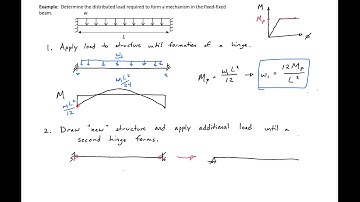 Example: Determine the distributed load required to form a mechanism in the fixed-fixed
beam.
w
L
M
Mp
ϕ
1. Apply load to structure until formation of a hinge.
w₁
L
M
w₁L²/24
w₁L²/12
Mp = w₁L²/12 → w₁ = 12Mp/L²
2. Draw "new" structure and apply additional load until a
second hinge forms.